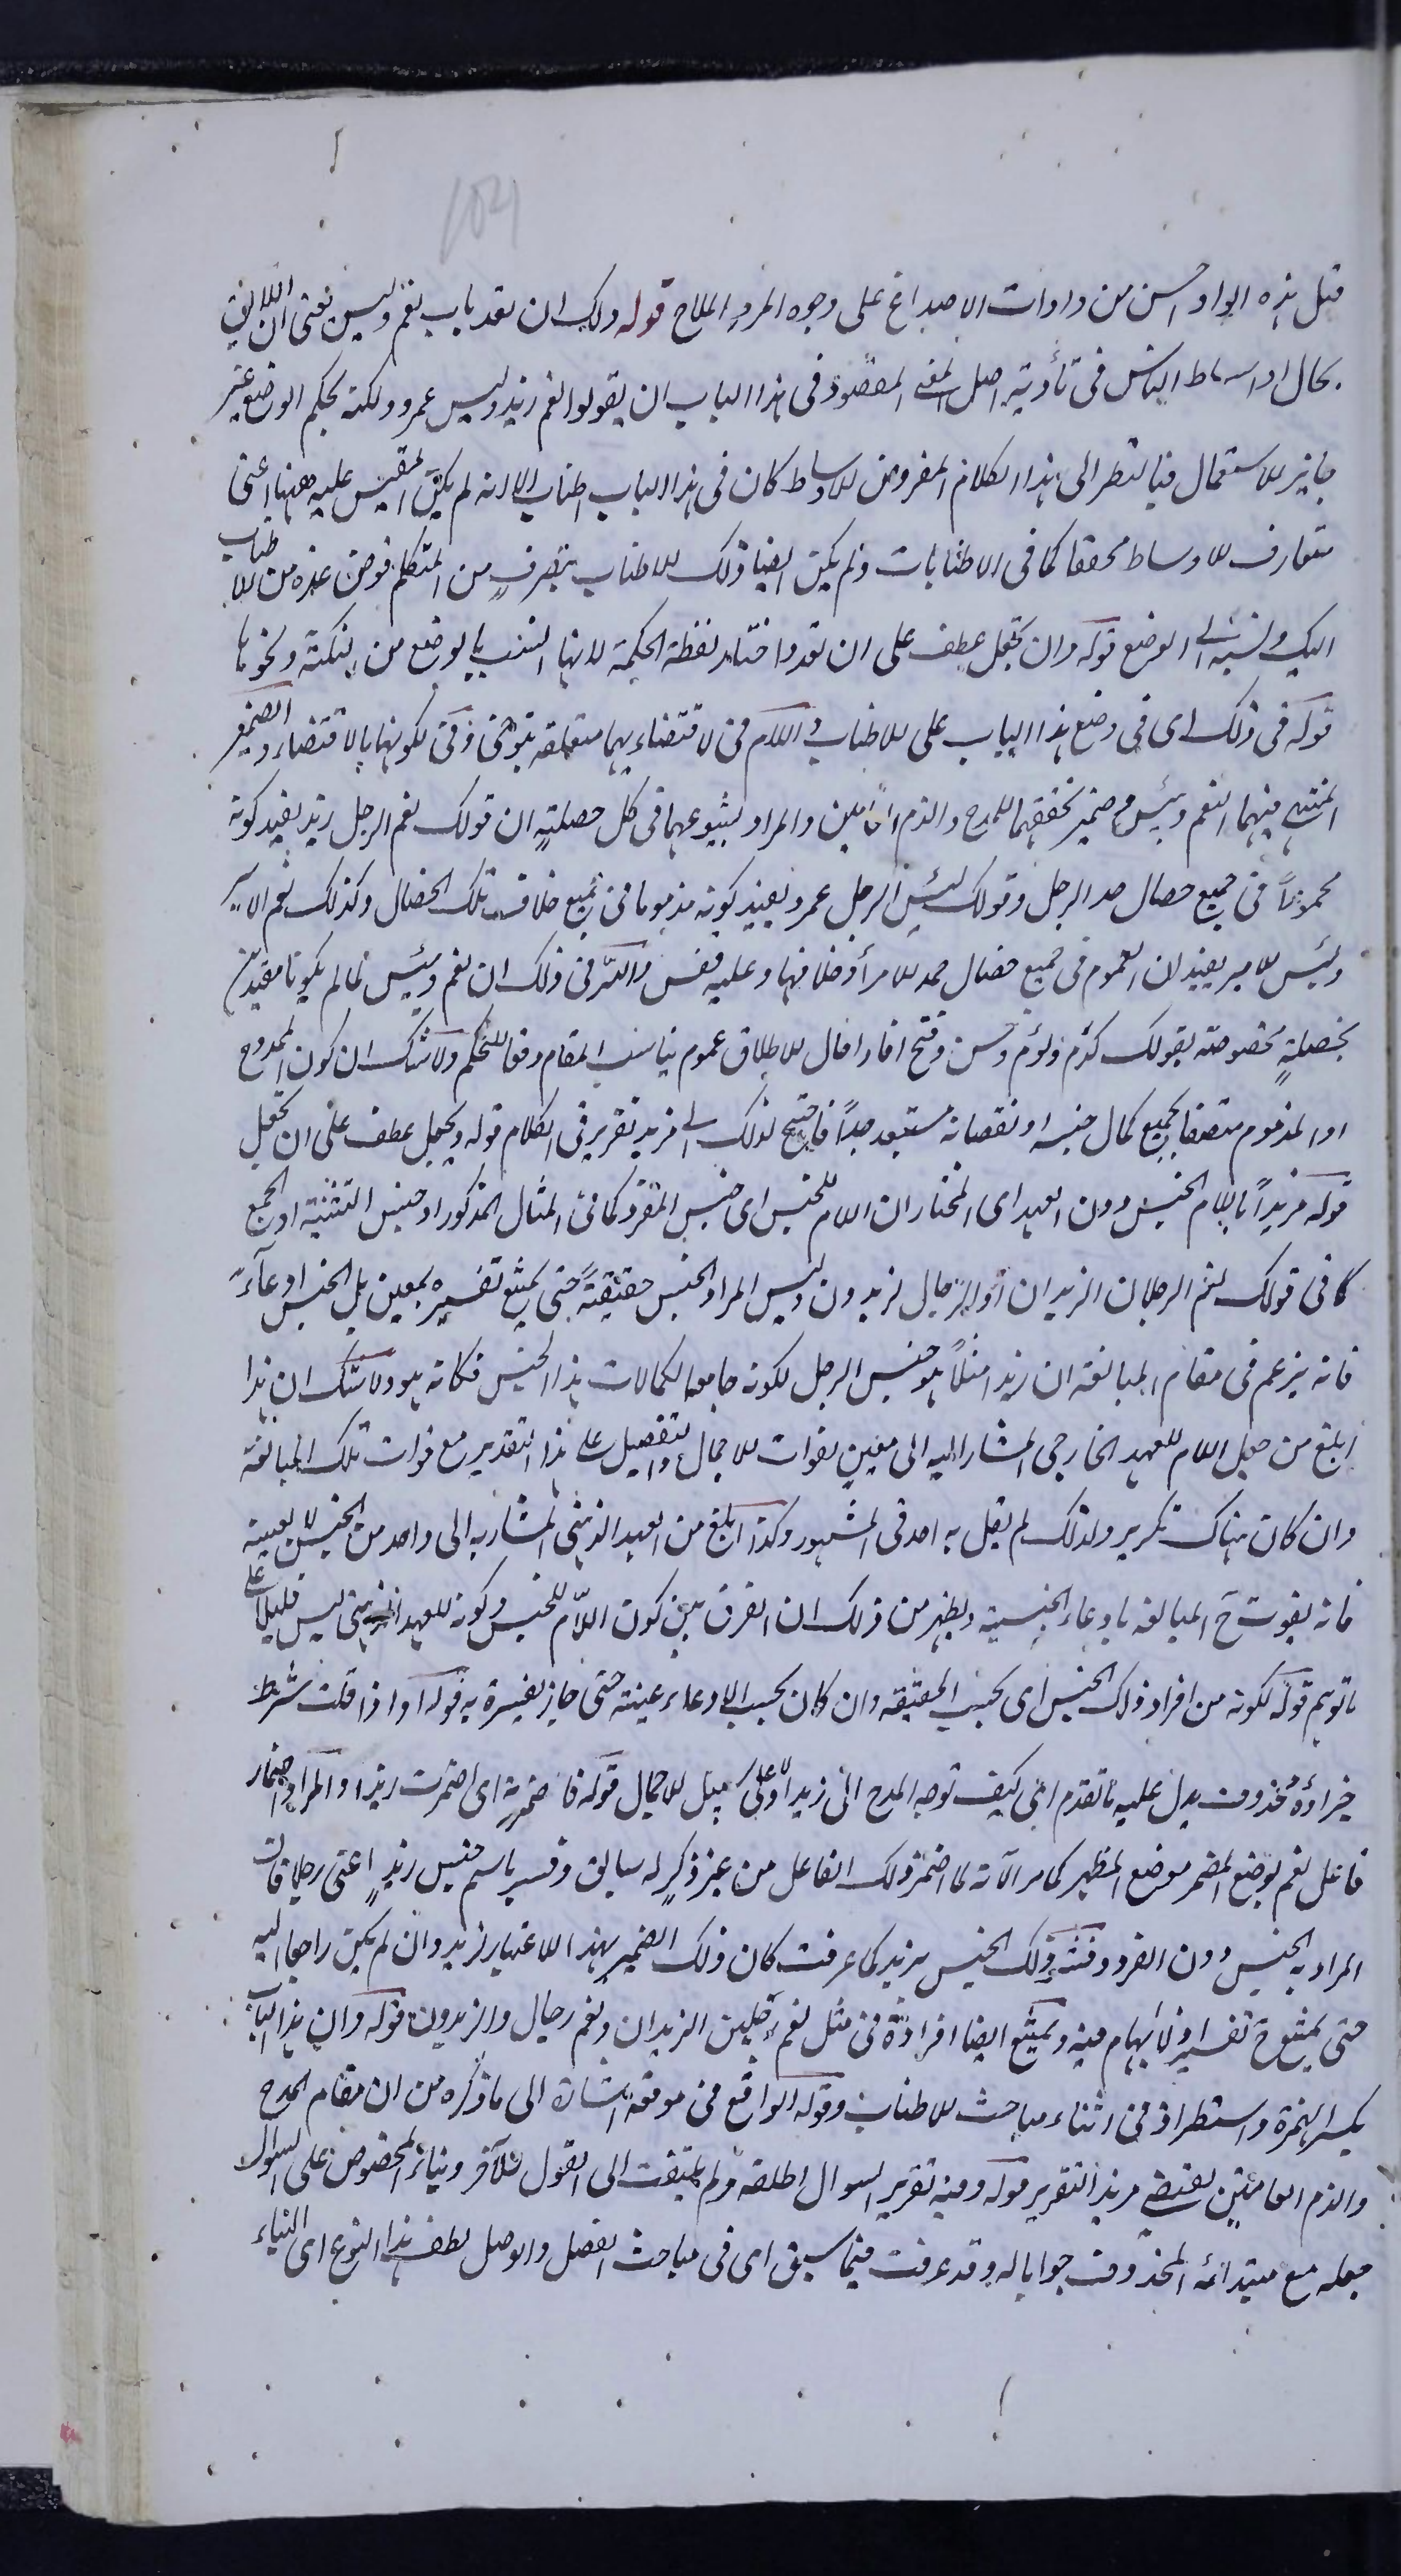 قيل هذه الواو احسن من واوات الاصداغ على وجوه المرد الملاح قوله ولك ان تعد باب نعم وبئس يعنى ان اللايق
بحال اوساط الناس فى تأدية اصل المعنى المقصود فى هذا الباب ان يقولوا نعم زيد وبئس عمرو ولكنه بحكم الوضع غير
جايز الاستعمال فبالنظر الى هذا الكلام المفروض للاوساط كان فى هذا الباب اطناب الا انه لم يكن المقيس عليه ههنا اعنى
متعارف الاوساط محققا كما فى الاطنابات ولم يكن ايضا ذلك الاطناب بتصرف من المتكلم فوض عده من الاطناب
اليك ونسبه الى الوضع قوله وان تجعل عطف على ان تعد واختار لفظة الحكمة لانها انسب بالوضع من النكتة ونحوها
قوله فى ذلك اى فى وضع هذا الباب على الاطناب واللام فى لاقتضائهما متعلقة بتوخى وفى كونهما بالاقتضاء والضمير
المنتهى فيهما لنعم وبئس وضمير تحققهما للمدح والذم العامين والمراد بشيوعهما فى كل خصلة ان قولك نعم الرجل زيد يفيد كونه
محمودا فى جميع خصال حمد الرجل وقولك بئس الرجل عمرو يفيد كونه مذموما فى جميع خلاف تلك الخصال وكذلك نعم الامير
وبئس الامير يفيدان العموم فى جميع خصال حمد الامرأ وخلافها وعليه فقس والسر فى ذلك ان نعم وبئس لما لم يكونا مقيدين
بخصلة مخصوصة بقولك كرم ولؤم وحسن وقبح افادا فى الاطلاق عموم يناسب المقام دفعا للتحكم ولا شك ان كون الممدوح
او المذموم متصفا بجميع كمال جنسه او نقصانه مستبعد جدا فاحتيج لذلك الى مزيد تقرير فى الكلام قوله ويجعل عطف على ان تجعل
قوله مزيدا باللام الجنس دون العهد اى المختار ان اللام للجنس اى جنس المفرد كما فى المثال المذكور او جنس التثنية او الجمع
كما فى قولك نعم الرجلان الزيدان او الرجال الزيدون وليس المراد الجنس حقيقة حتى يمتنع تفسيره بمعين بل الجنس ادعاء
فانه يزعم فى مقام المبالغة ان زيدا مثلا هو جنس الرجل لكونه جامعا لكمالات هذا الجنس فكانه هو ولا شك ان هذا
ابلغ من جعل اللام للعهد الخارجى المشار اليه الى معين لفوات الاجمال والتفصيل على هذا التقدير مع فوات تلك المبالغة
وان كان هناك تكرير ولذلك لم يقل به احد فى المشهور وكذا ابلغ من العهد الذهنى المشار به الى واحد من الجنس لا بعينه
فانه يفوت ح المبالغة بادعاء الجنسية ويظهر من ذلك ان الفرق بين كون اللام للجنس وكونه للعهد الذهنى ليس قليلا على
ما توهم قوله لكونه من افراد ذلك الجنس اى بحسب الحقيقة وان كان بحسب الادعاء عينه حتى جاز تفسيره به قوله واذا قلت شرط
جزاؤه محذوف يدل عليه ما تقدم اعنى كيف توجه المدح الى زيد اولا على سبيل الاجمال قوله فاضمرته اى اضمرت زيدا والمراد اضمار
فاعل نعم بوضع المضمر موضع المظهر كما مر الا انه لما اضمر ذلك الفاعل من غير ذكر له سابق وفسر باسم جنس زيد اعنى رجلا فان
المراد به الجنس دون الفرد وفسر ذلك الجنس بزيد كما عرفت كان ذلك الضمير بهذا الاعتبار لزيد وان لم يكن راجعا اليه
حتى يمتنع ح تفسيره ولا ابهام فيه ويمتنع ايضا افراده فى مثل نعم رجلين الزيدان ونعم رجال والزيدون قوله وان هذا الباب
بكسر الهمزة واستطراد فى اثناء مباحث الاطناب وقوله الواقع فى موقعه اشارة الى ما ذكره من ان مقام المدح
والذم العامين يقتضى مزيد التقرير قوله وفيه تقرير السوال اطلقه ولم يلتفت الى القول الآخر وبناء المخصوص على السوال
جعله مع مبتدائه المحذوف جوابا له وقد عرفت فيما سبق اى فى مباحث الفصل والوصل لطف هذا النوع اى البناء